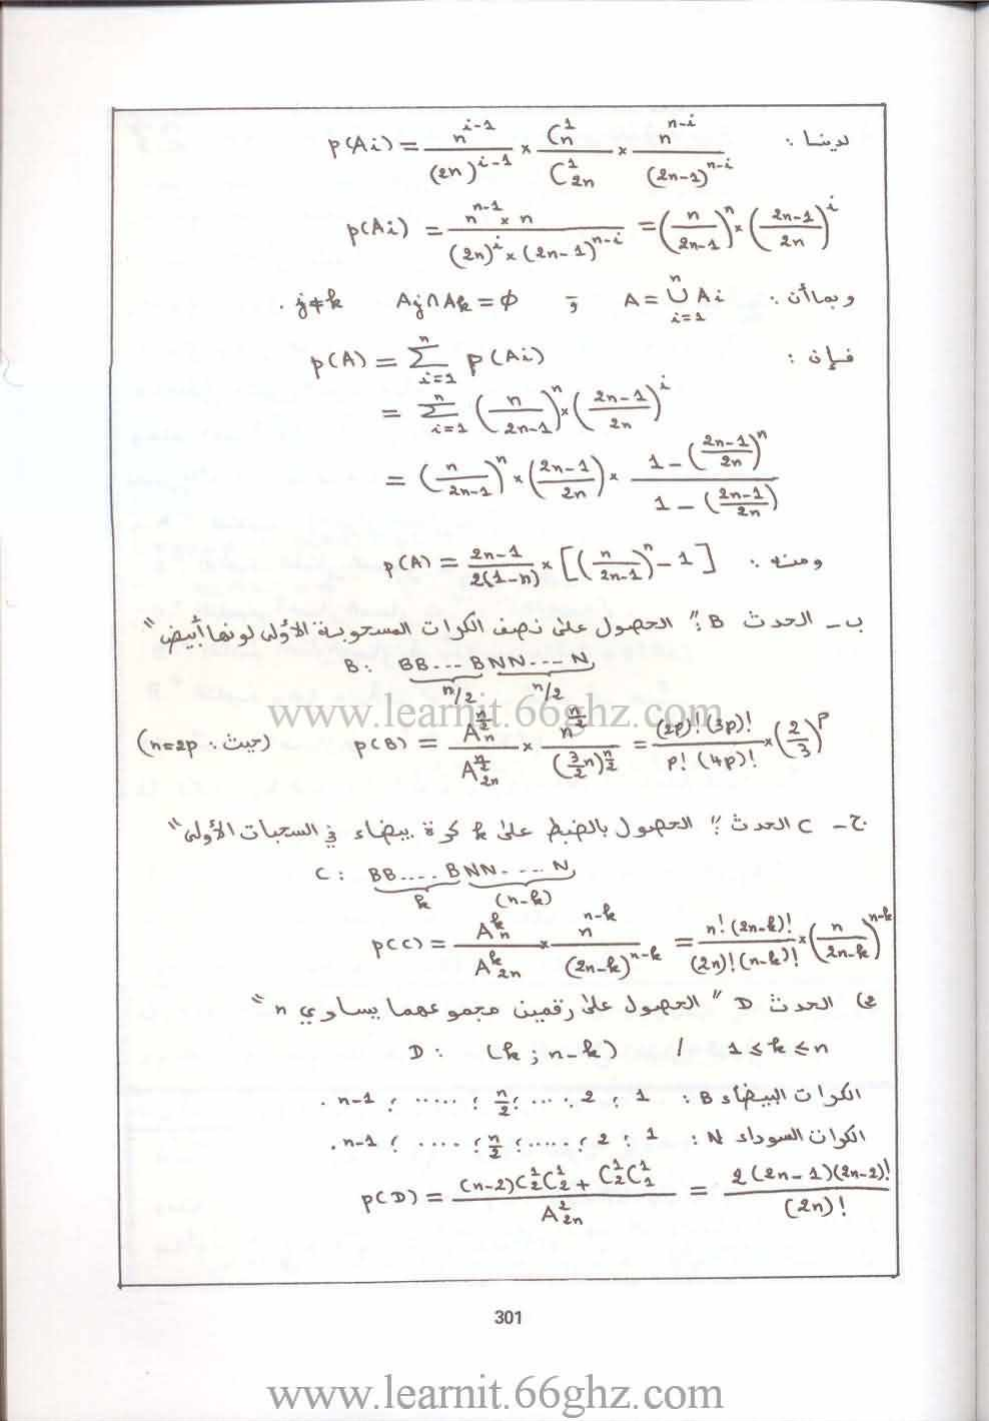 لدينا : p(Ai) = n^{i-1}/(2n)^{i-1} × C_n^1/C_{2n}^1 × n^{n-i}/(2n-1)^{n-i}
p(Ai) = (n^{n-1} × n)/((2n)^i × (2n-1)^{n-i}) = (n/(2n-1))^n × ((2n-1)/2n)^i
وبما أن : A = ⋃_{i=1}^{n} Ai و Aj ∩ Ak = ϕ j≠k .
فإن : p(A) = ∑_{i=1}^{n} p(Ai)
= ∑_{i=1}^{n} (n/(2n-1))^n × ((2n-1)/2n)^i
= (n/(2n-1))^n × ((2n-1)/2n) × (1-((2n-1)/2n)^n)/(1-((2n-1)/2n))
ومنه : p(A) = (2n-1)/(2(1-n)) × [(n/(2n-1))^n - 1]
ب - الحدث B :" الحصول على نصف الكرات المسحوبة الأولى لونها أبيض "
B : BB...B NN...N
n/2 n/2
www.learnit.66ghz.com
p(B) = A_n^{n/2}/A_{2n}^{n/2} × n^{n/2}/((3/2)n)^{n/2} = ((2p)!(3p)!)/(p!(4p)!) × (2/3)^p (حيث : n=2p)
ج - C الحدث :" الحصول بالضبط على k كرة بيضاء في السحبات الأولى "
C : BB....B NN....N
k (n-k)
p(C) = A_n^k/A_{2n}^k × n^{n-k}/(2n-k)^{n-k} = (n!(2n-k)!)/((2n)!(n-k)!) × (n/(2n-k))^{n-k}
الحدث D " الحصول على رقمين مجموعهما يساوي n "
D : (k ; n-k) / 1 ≤ k ≤ n
الكرات البيضاء B : 1 ; 2 ; ... ; n/2 ; ..... ; n-1 .
الكرات السوداء N : 1 ; 2 ; ..... ; n/2 ; .... ; n-1 .
p(D) = ((n-2)C_2^1 C_2^1 + C_2^1 C_1^1)/A_{2n}^2 = (2(2n-1)(2n-2)!)/(2n)!
301
www.learnit.66ghz.com